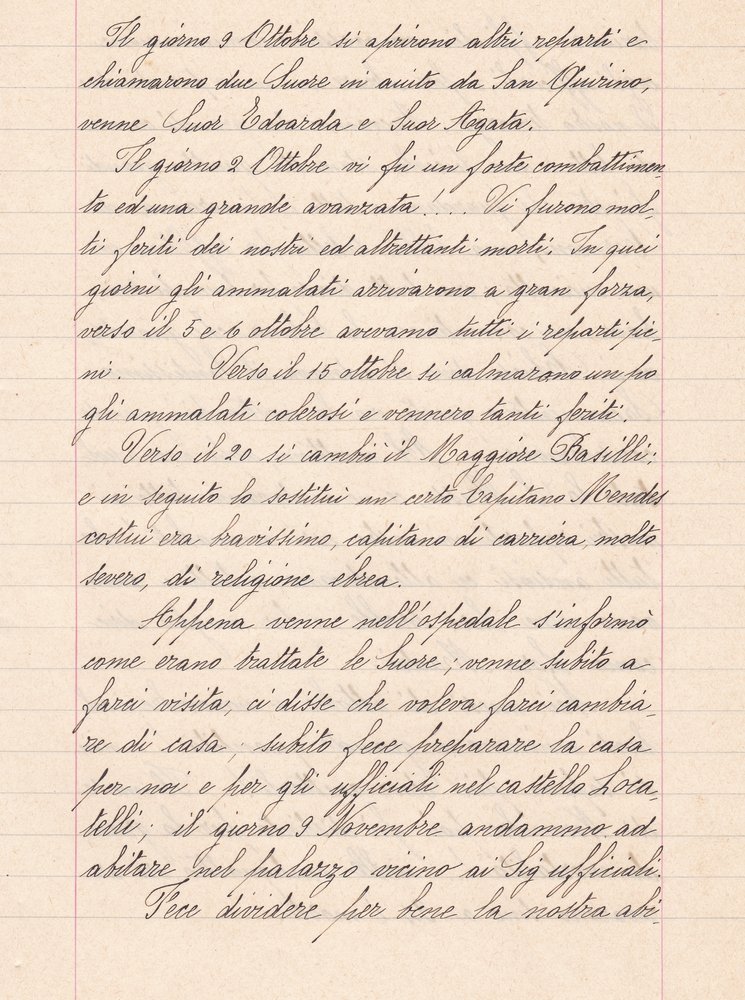 Il giorno 9 Ottobre si aprirono altri reparti e
chiamarono due Suore in aiuto da San Quirino,
venne Suor Edoarda e Suor Agata.
Il giorno 2 Ottobre vi fù un forte combattimen
to ed una grande avanzata!... Vi furono mol-
ti feriti dei nostri ed altrettanti morti. In quei
giorni gli ammalati arrivarono a gran forza,
verso il 5 e 6 ottobre avevamo tutti i reparti pie-
ni. Verso il 15 ottobre si calmarono un po
gli ammalati colerosi e vennero tanti feriti.
Verso il 20 si cambiò il Maggiore Basilli;
e in seguito lo sostituì un certo Capitano Mendes
costui era bravissimo, capitano di carriera, molto
severo, di religione ebrea.
Appena venne nell'ospedale s'informò
come erano trattate le Suore; venne subito a
farci visita, ci disse che voleva farci cambia-
re di casa; subito fece preparare la casa
per noi e per gli ufficiali nel castello Loca-
telli; il giorno 9 Novembre andammo ad
abitare nel palazzo vicino ai Sig ufficiali.
Fece dividere per bene la nostra abi-